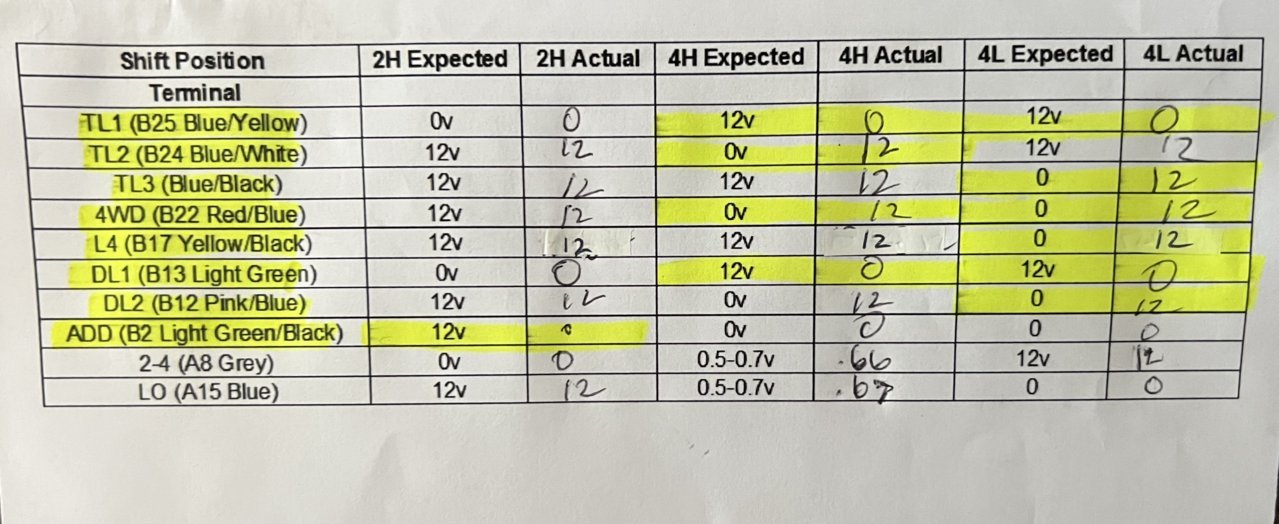 Shift Position 2H Expected 2H Actual 4H Expected 4H Actual 4L Expected 4L Actual
Terminal
TL1 (B25 Blue/Yellow) 0v 0 12v 0 12v 0
TL2 (B24 Blue/White) 12v 12 0v 12 12v 12
TL3 (Blue/Black) 12v 12 12v 12 0 12
4WD (B22 Red/Blue) 12v 12 0v 12 0 12
L4 (B17 Yellow/Black) 12v 12 12v 12 0 12
DL1 (B13 Light Green) 0v 0 12v 0 12v 0
DL2 (B12 Pink/Blue) 12v 12 0v 12 0 12
ADD (B2 Light Green/Black) 12v 0 0v 0 0 0
2-4 (A8 Grey) 0v 0 0.5-0.7v .66 12v 12
LO (A15 Blue) 12v 12 0.5-0.7v .67 0 0